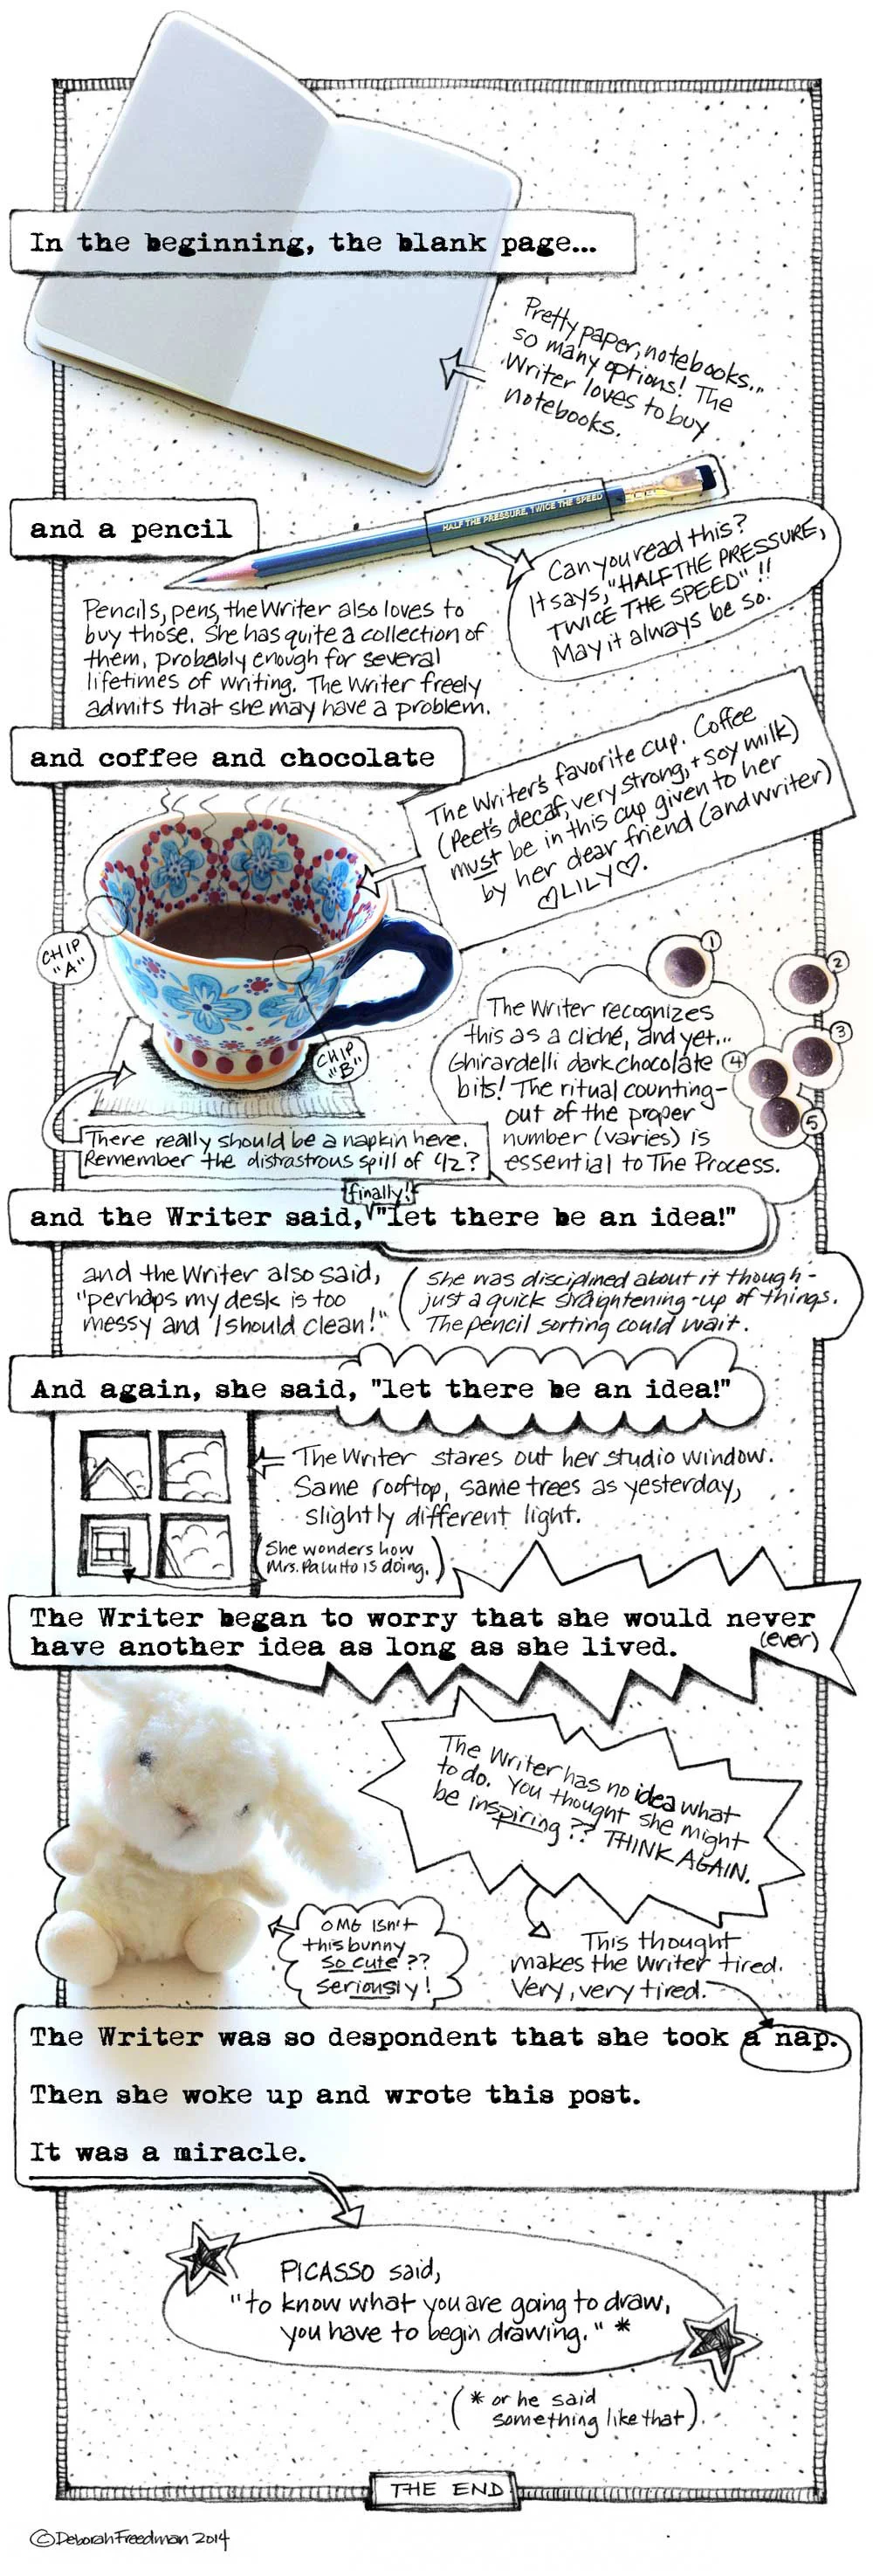 In the beginning, the blank page...
Pretty paper, notebooks...
so many options! The
Writer loves to buy
notebooks.
HALF THE PRESSURE, TWICE THE SPEED
and a pencil
Can you read this?
It says, "HALF THE PRESSURE,
TWICE THE SPEED"!!
May it always be so.
Pencils, pens, the Writer also loves to
buy those. She has quite a collection of
them, probably enough for several
lifetimes of writing. The Writer freely
admits that she may have a problem.
and coffee and chocolate
The Writer's favorite cup. Coffee
(Peet's decaf, very strong, + soy milk)
must be in this cup given to her
by her dear friend (and writer)
♡LILY♡.
CHIP
"A"
CHIP
"B"
1
2
3
4
5
The Writer recognizes
this as a cliché, and yet...
Ghirardelli dark chocolate
bits! The ritual counting-
out of the proper
number (varies) is
essential to The Process.
There really should be a napkin here.
Remember the distrastrous spill of 4/2?
finally!
and the Writer said, "let there be an idea!"
and the Writer also said,
"perhaps my desk is too
messy and I should clean!"
(She was disciplined about it though-
just a quick straightening-up of things.
The pencil sorting could wait.
And again, she said, "let there be an idea!"
The Writer stares out her studio window.
Same rooftop, same trees as yesterday,
slightly different light.
(She wonders how
Mrs. Palutto is doing.)
The Writer began to worry that she would never
have another idea as long as she lived.
(ever)
The Writer has no idea what
to do. You thought she might
be inspiring?? THINK AGAIN.
OMG Isn't
this bunny
so cute??
Seriously!
This thought
makes the Writer tired.
Very, very tired.
The Writer was so despondent that she took a nap.
Then she woke up and wrote this post.
It was a miracle.
PICASSO said,
"to know what you are going to draw,
you have to begin drawing." *
(* or he said
something like that).
THE END
©Deborah Freedman 2014